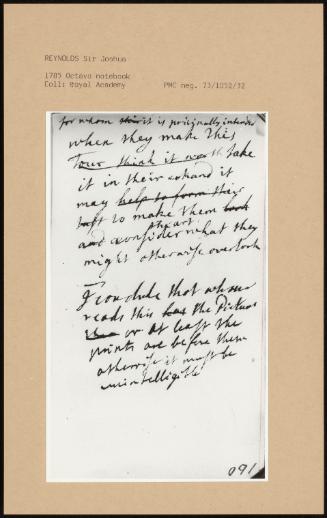 REYNOLDS Sir Joshua
1785 Octavo notebook
Coll: Royal Academy
PMC neg. 73/1052/32
for whom it is originally intended
when they make this
Tour think it worth take
it in their and it
may help to form their
to make them look
and consider what they
might otherwise overlook
I conclude that whoever
reads this has the Pictures
or at least the
prints are before them
otherwise it must be
unintelligible
091